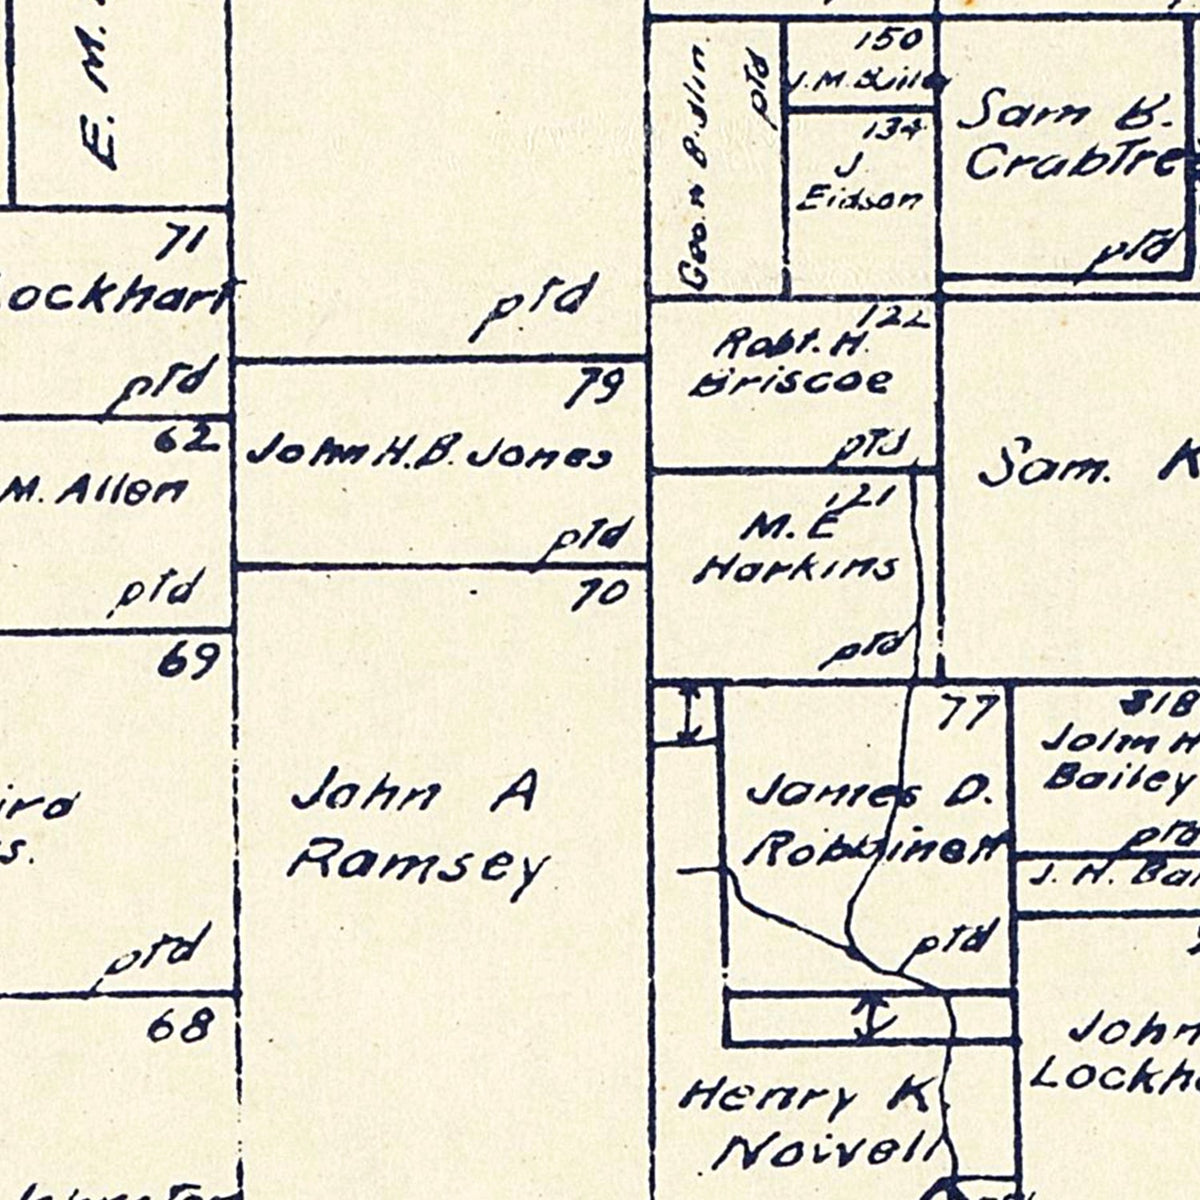 E. M.
71
ockhart
ptd
62
M. Allen
ptd
69
ird
s.
ptd
68
ptd
79
John H. B. Jones
ptd
70
John A
Ramsey
ptd
150
134
J.
Eidson
Sam B.
CrabTre
ptd
122
Robt. H.
Briscoe
ptd
121
M. E
Harkins
ptd
Sam. K
77
James D.
Robbinett
ptd
318
John H
Bailey
ptd
J. H. Bai
John
Lockh
Henry K